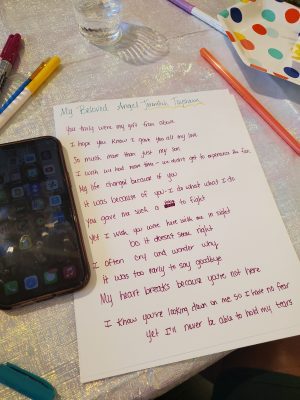 My Beloved Angel
You truly were my gift from above
I hope you know I gave you all my love
So much more than just my son
I wish we had more time - we didn't get to experience the fun
My life changed because of you
It was because of you I do what I do
You gave me such a to fight
Yet I wish you were here with me in sight
it doesnt seem right
I often cry and wonder why
It was too early to say goodbye
My heart breaks because you're not here
I know you're looking down on me so I have no fear
Yet I'll never be able to hold my tears